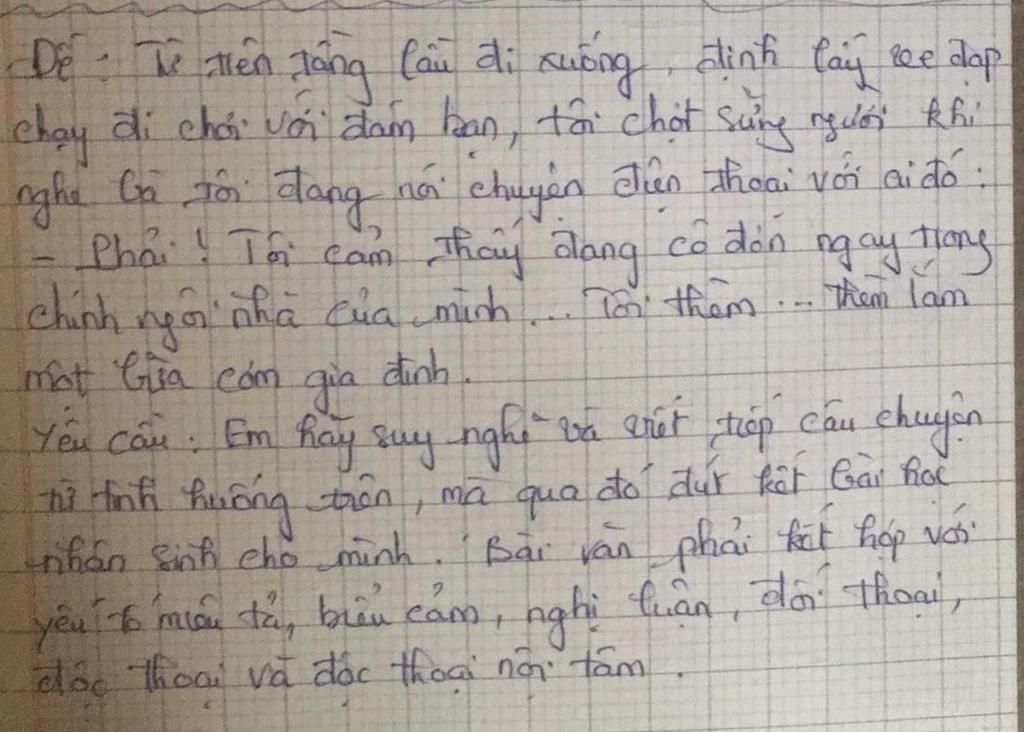 Đề: Từ trên tầng lầu đi xuống, định lấy xe đạp
chạy đi chơi với đám bạn, tôi chợt sững người khi
nghe bà tôi đang nói chuyện điện thoại với ai đó:
- Phải! Tôi cảm thấy đang cô đơn ngay trong
chính ngôi nhà của mình... Tôi thèm... thèm lắm
một bữa cơm gia đình.
Yêu cầu: Em hãy suy nghĩ và viết tiếp câu chuyện
từ tình huống trên, mà qua đó đút kết bài học
nhân sinh cho mình. Bài văn phải kết hợp với
yếu tố miêu tả, biểu cảm, nghị luận, đối thoại,
độc thoại và độc thoại nội tâm.